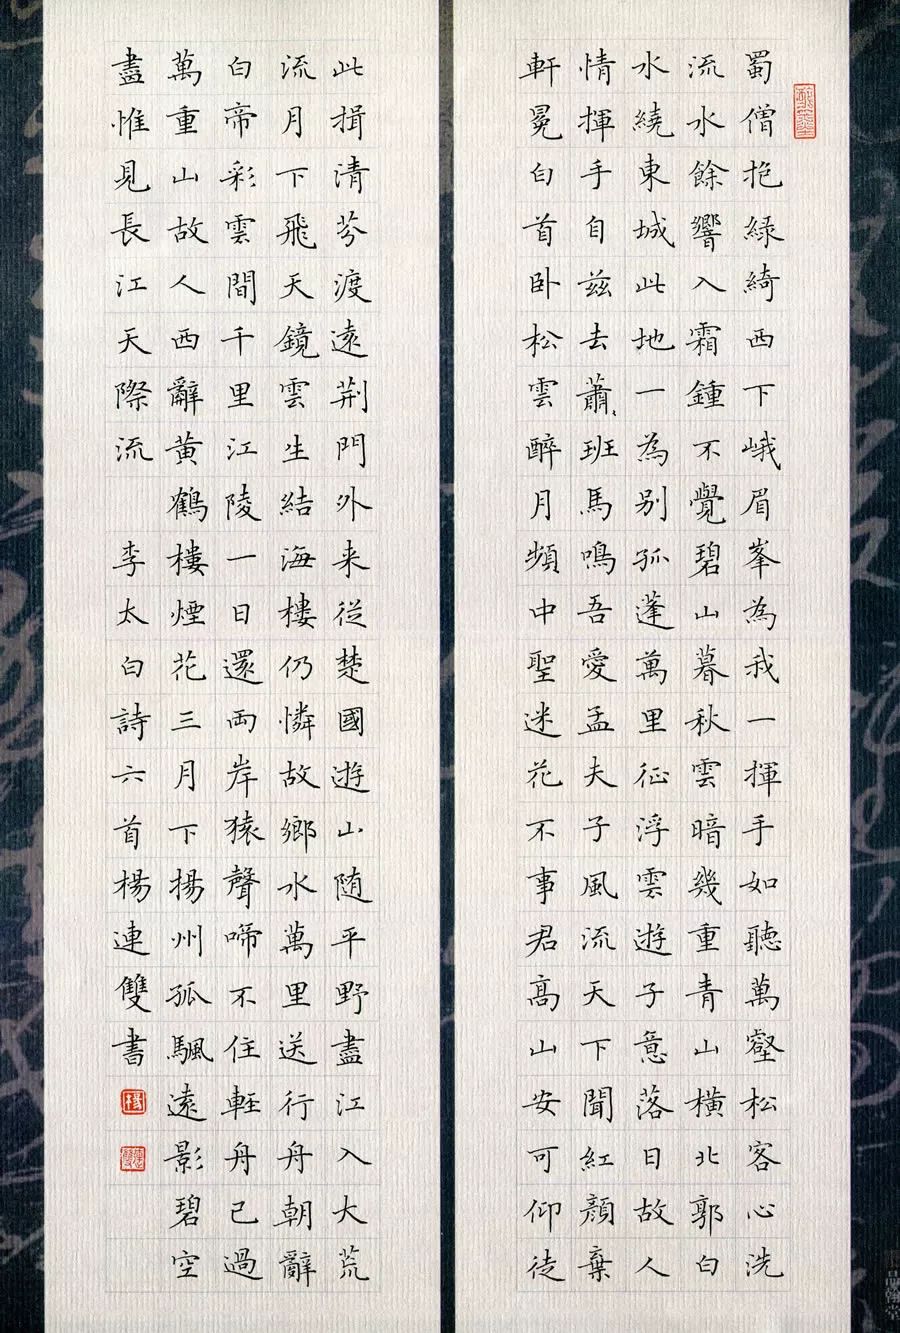 蜀僧抱綠綺西下峨眉峯為我一揮手如聽萬壑松客心洗
流水餘響入霜鍾不覺碧山暮秋雲暗幾重青山橫北郭白
水繞東城此地一為別孤蓬萬里征浮雲遊子意落日故人
情揮手自茲去蕭〻班馬鳴吾愛孟夫子風流天下聞紅顏棄
軒冕白首卧松雲醉月頻中聖迷花不事君高山安可仰徒
此揖清芬渡遠荊門外来從楚國遊山随平野盡江入大荒
流月下飛天鏡雲生結海樓仍憐故鄉水萬里送行舟朝辭
白帝彩雲間千里江陵一日還兩岸猿聲啼不住輕舟已過
萬重山故人西辭黃鶴樓煙花三月下揚州孤颿遠影碧空
盡惟見長江天際流 李太白詩六首楊連雙書
楊
品翰堂